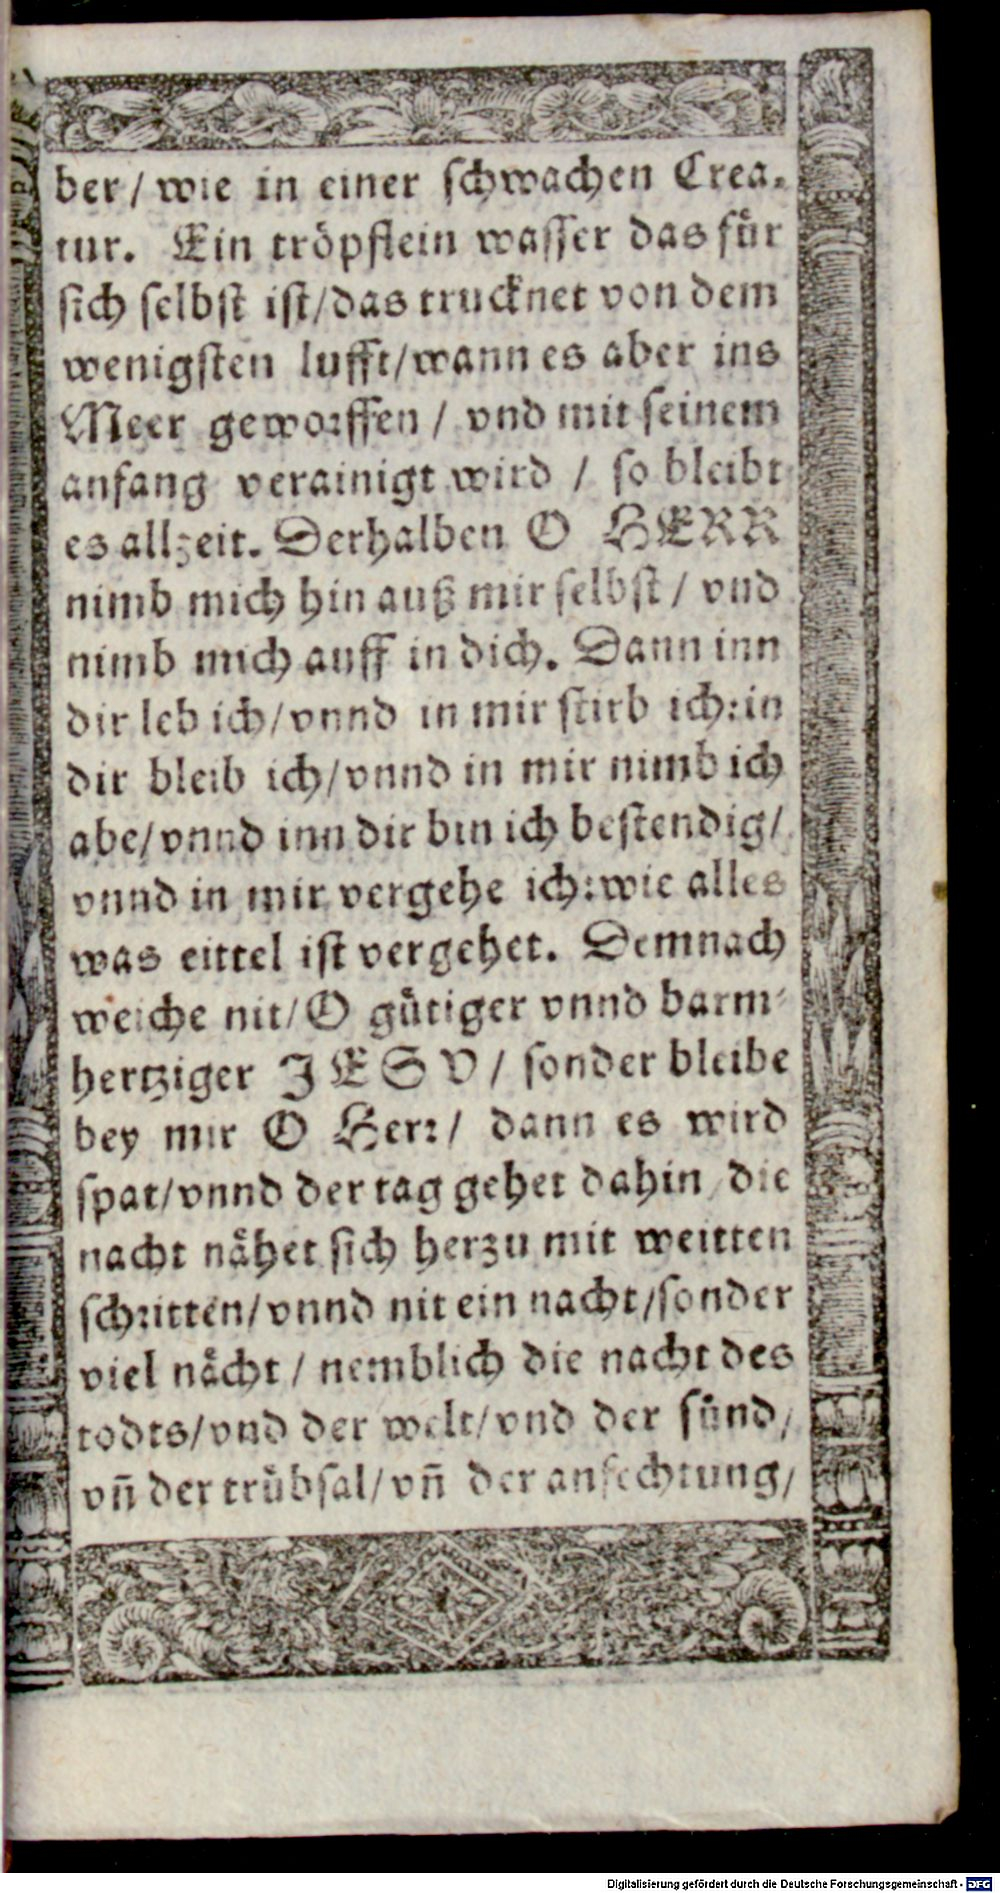 ber / wie in einer schwachen Crea-
tur. Ein tröpflein wasser das für
sich selbst ist/das trucknet von dem
wenigsten lufft/wann es aber ins
Meer geworffen / vnd mit seinem
anfang verainigt wird / so bleibt
es allzeit. Derhalben O HERR
nimb mich hin auß mir selbst / vnd
nimb mich auff in dich. Dann inn
dir leb ich/vnnd in mir stirb ich:in
dir bleib ich/vnnd in mir nimb ich
abe/vnnd inn dir bin ich bestendig/
vnnd in mir vergehe ich:wie alles
was eittel ist vergehet. Demnach
weiche nit/O gütiger vnnd barm-
hertziger JESV / sonder bleibe
bey mir O Herr / dann es wird
spat/vnnd der tag gehet dahin/die
nacht nähet sich herzu mit weitten
schritten/vnnd nit ein nacht/sonder
viel nächt / nemblich die nacht des
todts/vnd der welt/vnd der sünd/
vñ der trübsal/vñ der anfechtung/
Digitalisierung gefördert durch die Deutsche Forschungsgemeinschaft - DFG